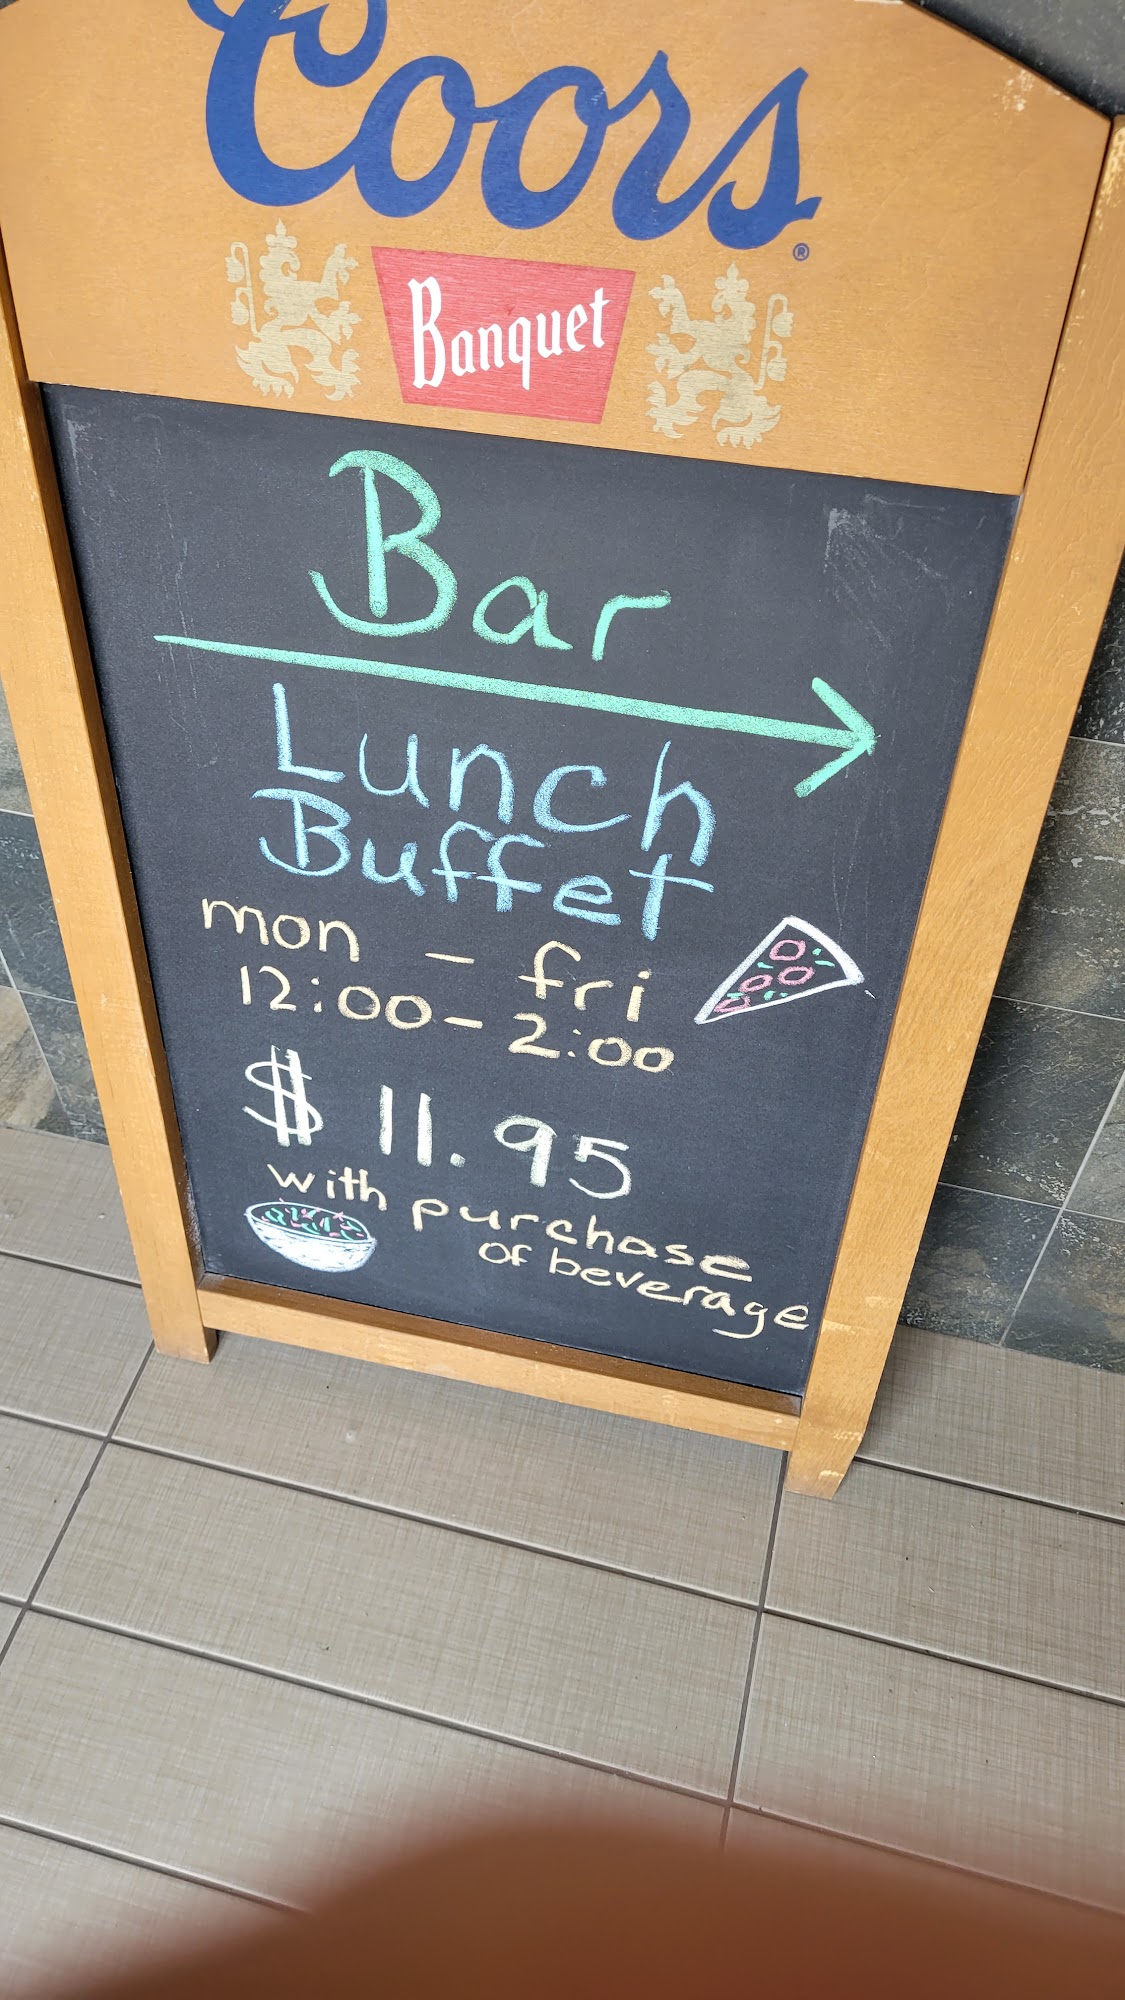 Coors®
Banquet
Bar
Lunch
Buffet
mon - fri
12:00 - 2:00
$11.95
with purchase
of beverage